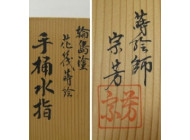 輪島塗
花筏蒔絵
手桶水指
蒔絵師
宗芳
宗芳